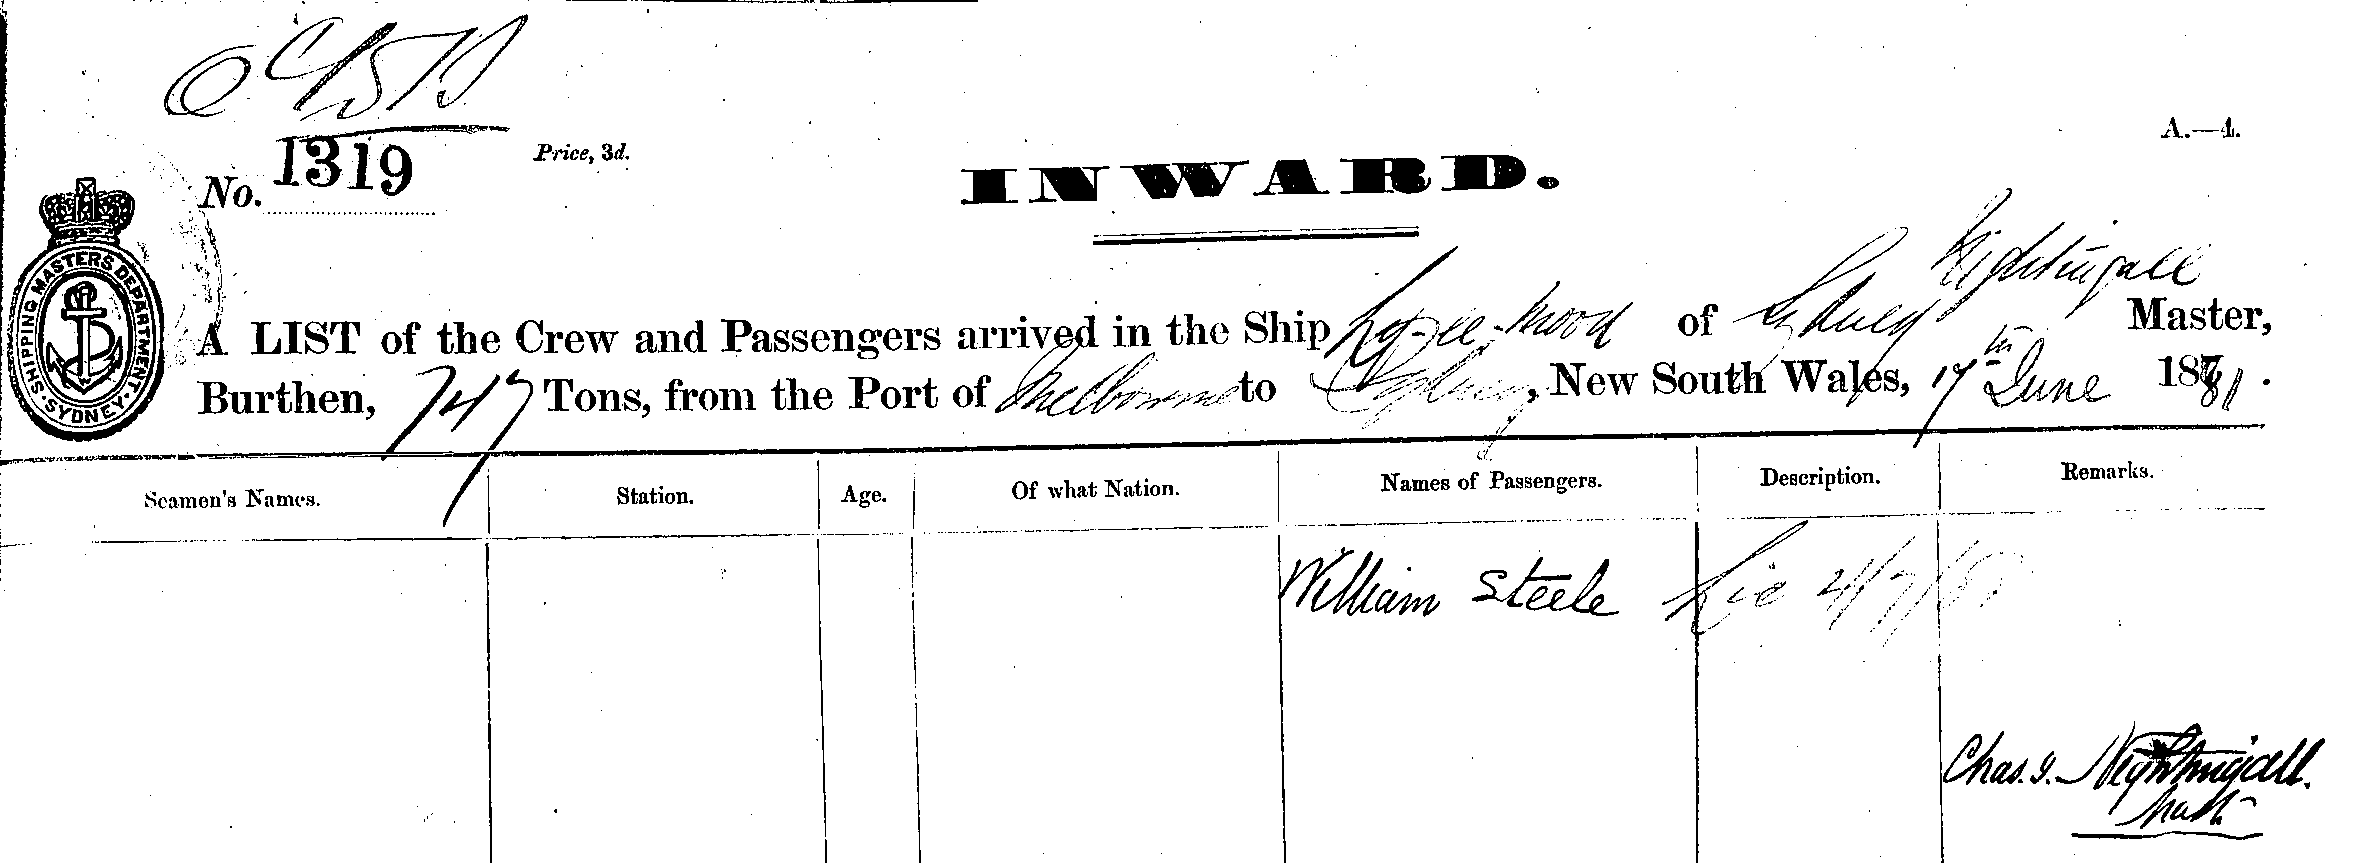 No. 1319 Price, 3d.
A.—4.
INWARD.
SHIPPING MASTERS DEPARTMENT
SYDNEY
Nightingall
A LIST of the Crew and Passengers arrived in the Ship of Sydney Master,
Burthen, 747 Tons, from the Port of Melbourne to Sydney, New South Wales, 17th June 1881.
Seamen's Names. Station. Age. Of what Nation. Names of Passengers. Description. Remarks.
William Steele
Chas. J. Nightingall.